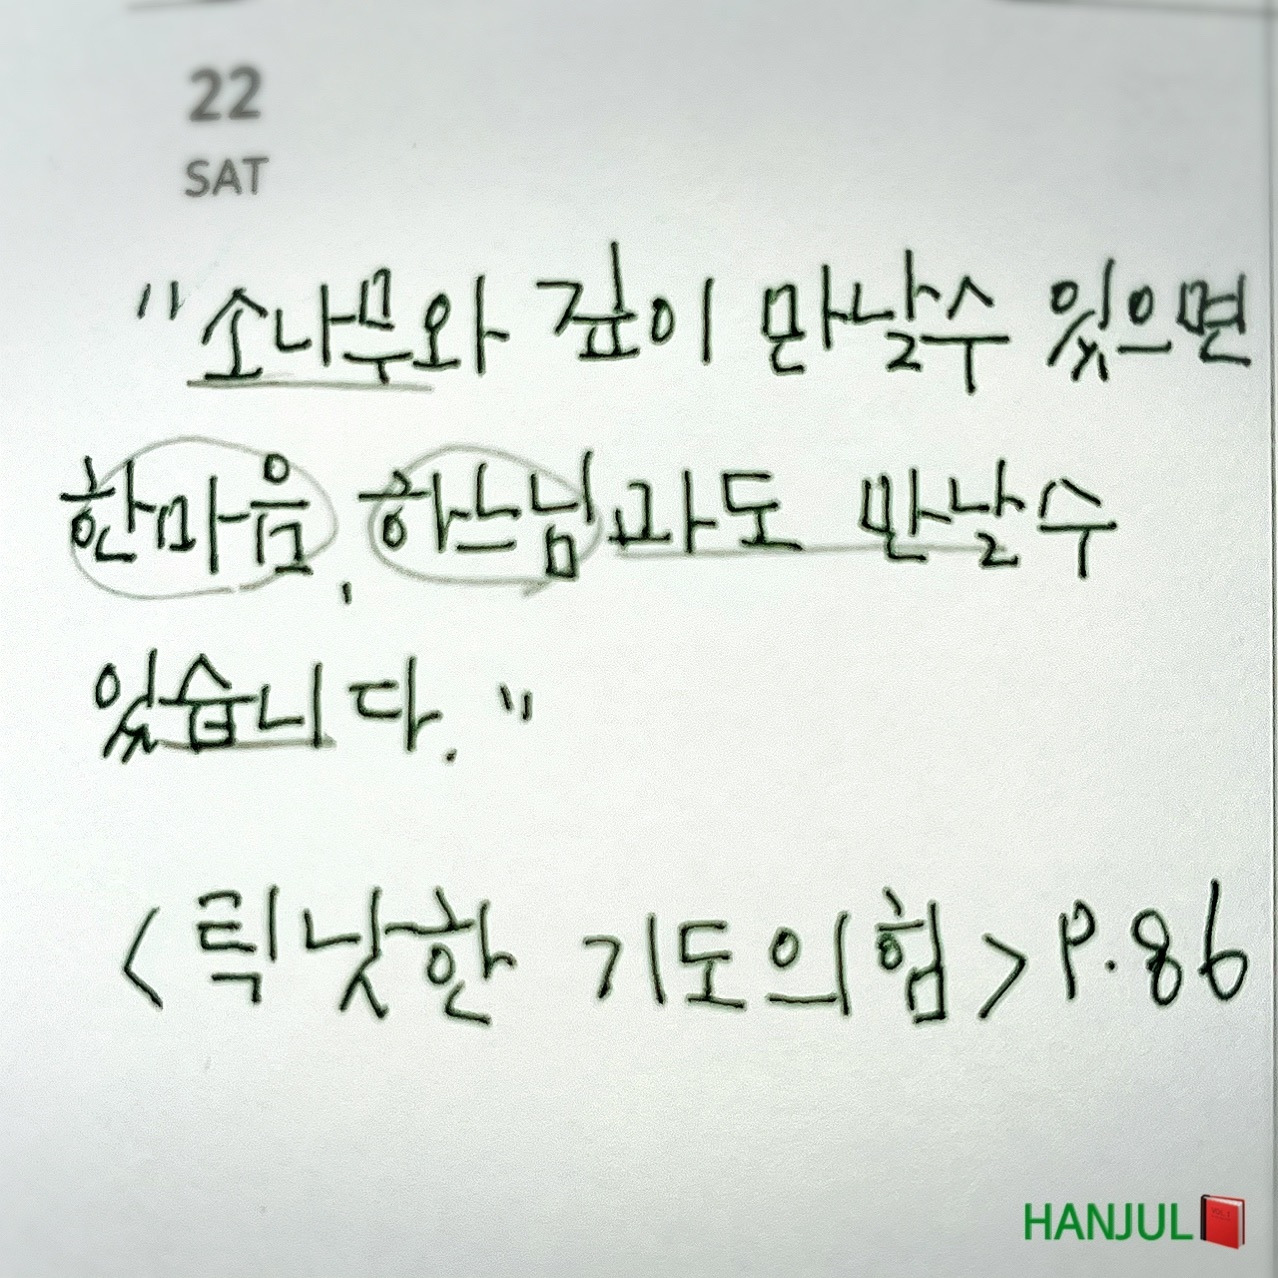 22
SAT
"소나무와 깊이 만날수 있으면
한마음, 하느님과도 만날수
있습니다."
<틱낫한 기도의힘> P.86
HANJUL